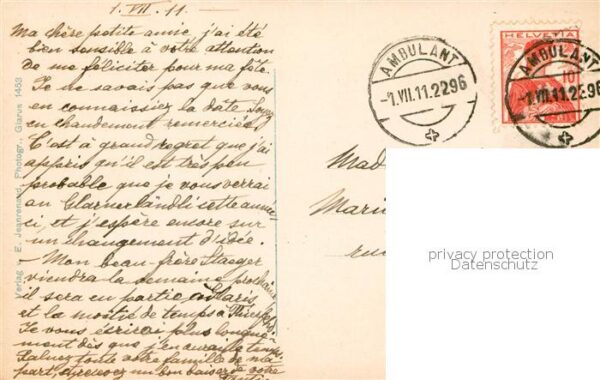 1. VII. 11.
Ma chère petite amie, j'ai été
bien sensible à votre attention
de me féliciter pour ma fête.
Je ne savais pas que vous
en connaissiez la date. Soyez
en chaudement remerciée.
C'est à grand regret que j'ai
appris qu'il est très peu
probable que je vous verrai
au Glarnerländli cette année-
ci, et j'espère encore sur
un changement d'idée.
- Mon beau-frère Staeger
viendra la semaine prochaine
il sera en partie à Glaris,
et la moitié de temps à
Je vous écrirai plus longue-
ment dès que j'en aurai le temps.
Saluez toute votre famille de ma
part, et recevez un bon baiser de votre
Verlag E. Jeanrenaud, Photogr., Glarus 1453
HELVETIA
10
AMBULANT
-1.VII.11.2296
AMBULANT
-1.VII.11.2296
Mad
Mari
ru
privacy protection
Datenschutz